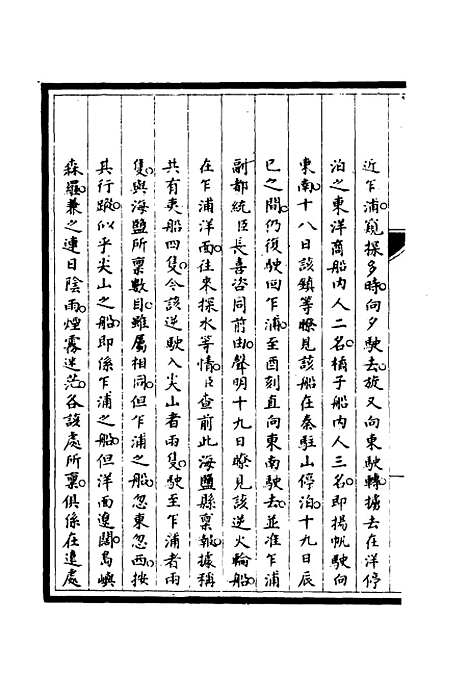 近乍浦窺探多時向夕駛去旋又向東駛轉擄去在洋停
泊之東洋商船內人二名橋子船內人三名即揚帆駛向
東南十八日該鎮等瞭見該船在秦駐山停泊十九日辰
巳之間仍復駛回乍浦至酉刻直向東南駛去並准乍浦
副都統臣長喜咨同前由聲明十九日瞭見該逆火輪船
在乍浦洋面往來探水等情臣查前此海鹽縣稟報據稱
共有夷船四隻今該逆駛入尖山者兩隻駛至乍浦者兩
隻與海鹽所稟數目雖屬相同但乍浦之船忽東忽西按
其行蹤似乎尖山之船即係乍浦之船但洋面遼闊島嶼
森羅兼之連日陰雨煙霧迷茫各該處所稟俱係在遠處